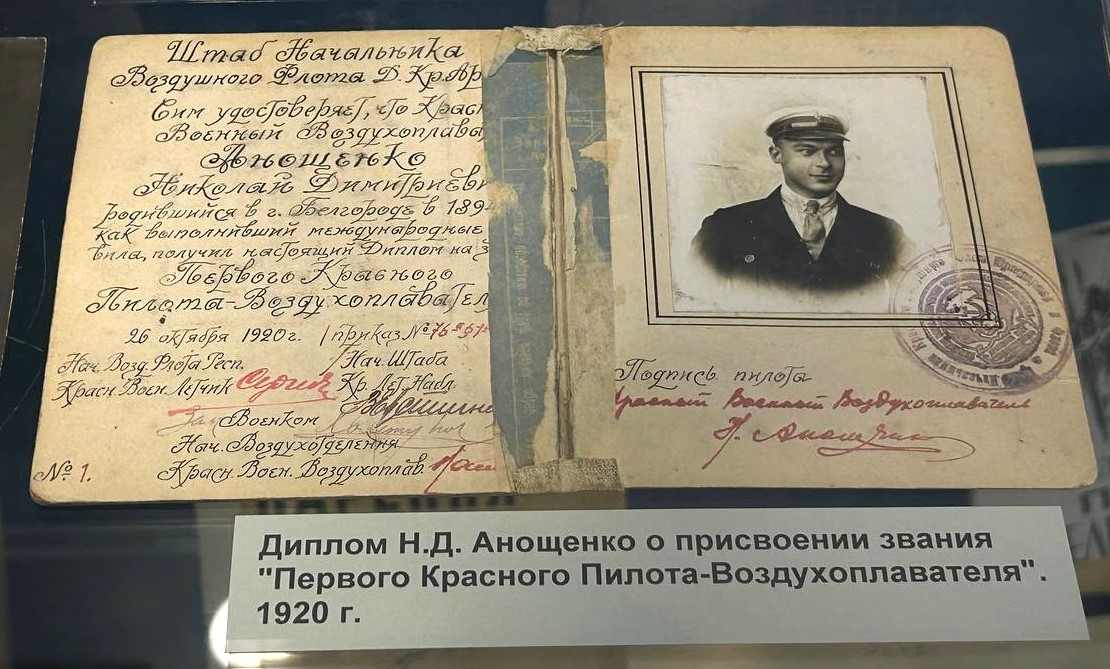 Штаб Начальника
Воздушного Флота Д. Кр. Ар
Сим удостоверяет, что Красн
Военный Воздухоплава
Анощенко
Николай Димитриеви
родившийся в г. Белгороде в 189
как выполнивший международные
вила, получил настоящий Диплом на з
Первого Красного
Пилота-Воздухоплавател
26 октября 1920 г. /приказ №
Нач. Возд. Флота Респ.
Красн. Воен. Летчик
Нач. Штаба
Кр. Лет. Набл.
Военком
Нач. Воздухотделения
Красн. Воен. Воздухоплав.
№ 1.
Подпись пилота
Красный Военный Воздухоплаватель
Н. Анощенко
Диплом Н.Д. Анощенко о присвоении звания
"Первого Красного Пилота-Воздухоплавателя".
1920 г.